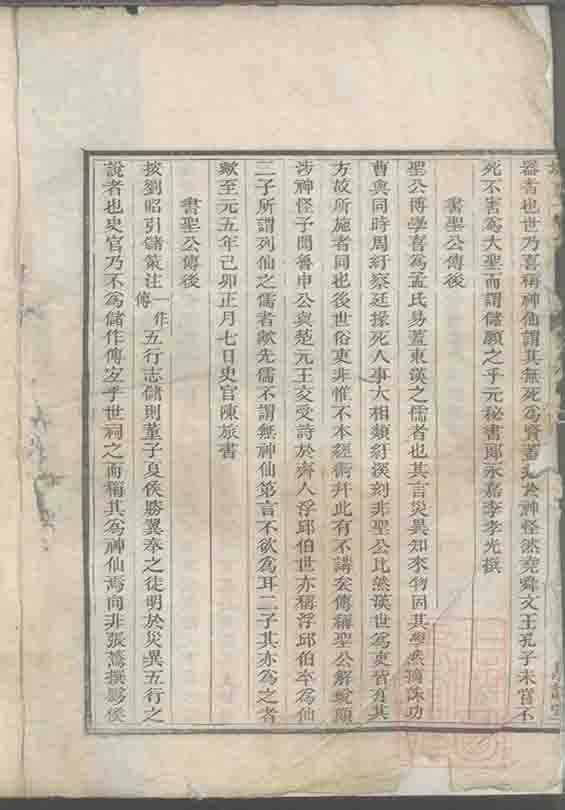 器者也世乃喜稱神仙謂其無死為賢蓋於神怪然堯舜文王孔子未嘗不
死不害為大聖而謂儲願之乎元秘書郎永嘉李孝光撰
書聖公傳後
聖公博學喜為孟氏易蓋東漢之儒者也其言災異知來物固其學然摘誅功
曹與同時周紆察廷掾死人事大相類紆深刻非聖公比然漢世為吏皆有其
方故所施者同也後世俗吏非惟不本經術幷此有不講矣傳稱聖公解蛻頗
涉神怪予聞魯申公與楚元王交受詩於齊人浮邱伯世亦稱浮邱伯本為仙
二子所謂列仙之儒者歟先儒不謂無神仙第言不欲為耳二子其亦為之者
歟至元五年己卯正月七日史官陳旅書
書聖公傳後
按劉昭引儲策注一作傳五行志儲則董子夏侯勝翼奉之徒明於災異五行之
說者也史官乃不為儲作傳宜乎世祠之而稱其為神仙焉向非張𦶜撰黟侯